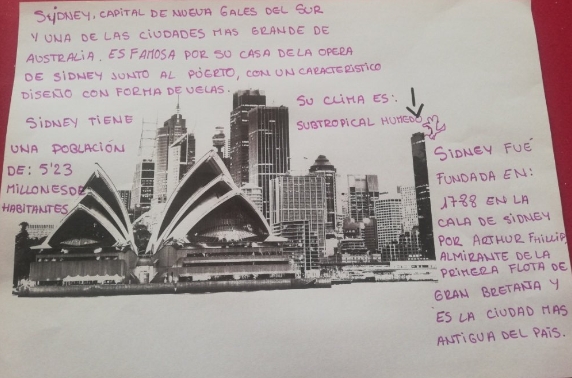 SyDNEY, CAPITAL DE NUEVA GALES DEL SUR
Y UNA DE LAS CIUDADES MAS GRANDE DE
AUSTRALIA. ES FAMOSA POR SU CASA DE LA OPERA
DE SIDNEY JUNTO AL PÓERTO, CON UN CARACTERISTICO
DISEÑO CON FORMA DE VELAS.
SU CLIMA ES:
SUBTROPICAL HUMEDO
SIDNEY TIENE
UNA POBLACIÓN
DE: 5'23
MILLONES DE
HABITANTES
SIDNEY FUÉ
FUNDADA EN:
1788 EN LA
CALA DE SIDNEY
POR ARTHUR PHILLIP,
ALMIRANTE DE LA
PRIMERA FLOTA DE
GRAN BRETAÑA Y
ES LA CIUDAD MAS
ANTIGUA DEL PAÍS.